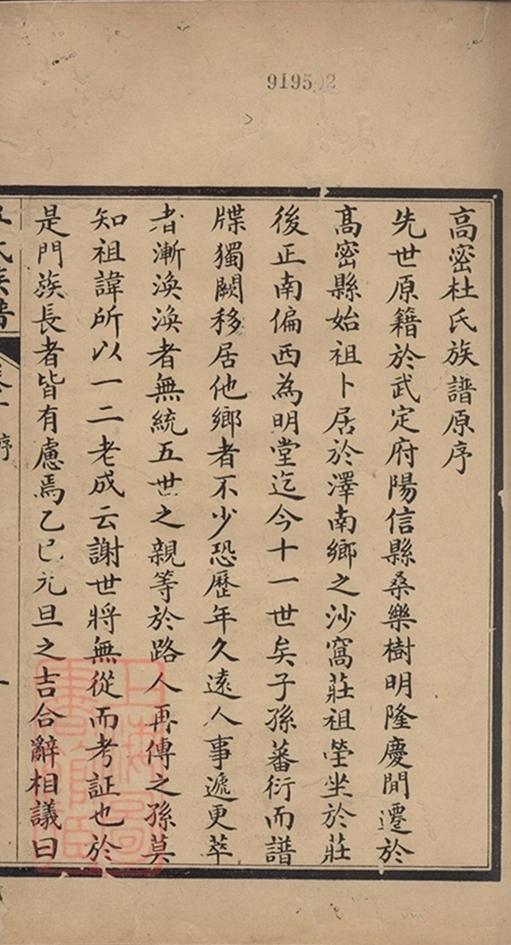 919502
高密杜氏族譜原序
先世原籍於武定府陽信縣桑樂樹明隆慶間遷於
高密縣始祖卜居於澤南鄉之沙窩莊祖塋坐於莊
後正南偏西為明堂迄今十一世矣子孫蕃衍而譜
牒獨闕移居他鄉者不少恐歷年久遠人事遞更萃
者漸渙渙者無統五世之親等於路人再傳之孫莫
知祖諱所以一二老成云謝世將無從而考証也於
是門族長者皆有慮焉乙巳元旦之吉合辭相議曰
氏族譜
序